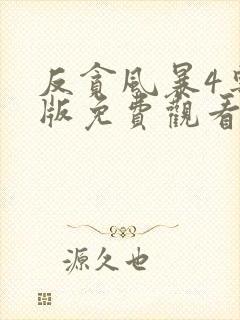 反貪風暴4粵
版免費觀看
源久也